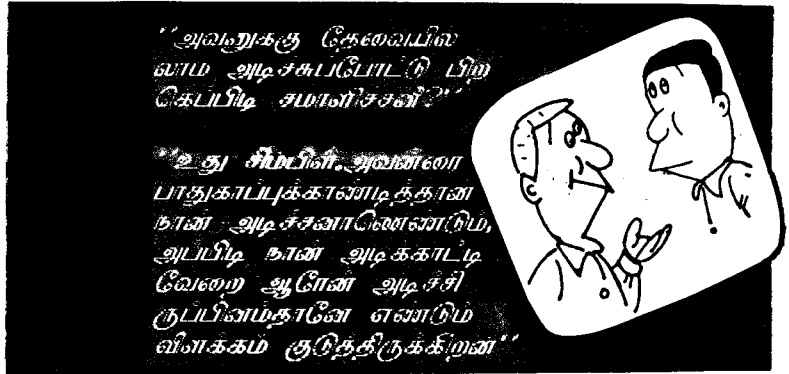 “அவனுக்கு தேவையில்
லாம அடிச்சுப்போட்டு பிற
கெப்பிடி சமாளிச்சனி?”
“உது சிம்பிள். அவன்ரை
பாதுகாப்புக்காண்டித்தான்
நான் அடிச்சனாணெண்டும்,
அப்பிடி நான் அடிக்காட்டி
வேறை ஆரேன் அடிச்சி
ருப்பினம்தானே எண்டும்
விளக்கம் குடுத்திருக்கிறன்”